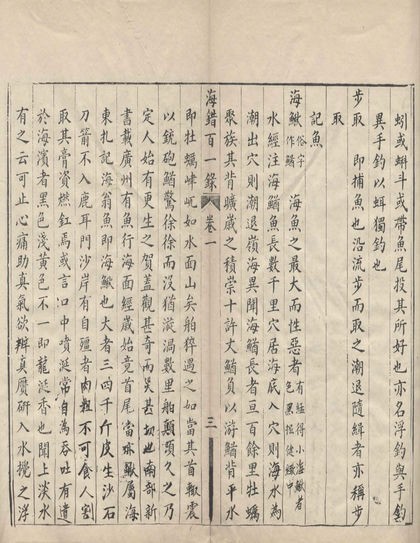 蚓或蝌斗或帶魚尾投其所好也亦名浮鈎與手鈎
異手鈎以蝦獨鈎也
步取 即捕魚也沿流步而取之潮退隨緝者亦稱步
取
記魚
海鰍俗字作鰌 海魚之最大而性惡者有經得小海鰍者色黑抵健鰦中
水經注海鰌魚長數千里穴居海底入穴則海水為
潮出穴則潮退嶺海異聞海鰌長者亘百餘里牡蠣
聚族其背曠歲之積崇十許丈鰌負以游鰌背平水
即牡蠣峍屼如水面山矣舶猝遇之如當其首輒震
以銃砲鰌驚徐徐而没猶漩渦數里舶顛頓久之乃
定人始有更生之賀蓋觀甚奇而災甚切也南部新
書載廣州有魚行海面經歲始竟首尾當味鰍屬海
東札記海翁魚即海鰍也大者三四千斤皮生沙石
刀箭不入鹿耳門沙岸有自疆者肉粗不可食人割
取其膏資燃缸焉或言口中噴涎常自為吞吐有遺
於海濱者黑色淺黃色不一即龍涎香也聞上淡水
有之云可止心痛助真氣欲辨真贋研入水攪之浮
海錯百一錄 卷一 三